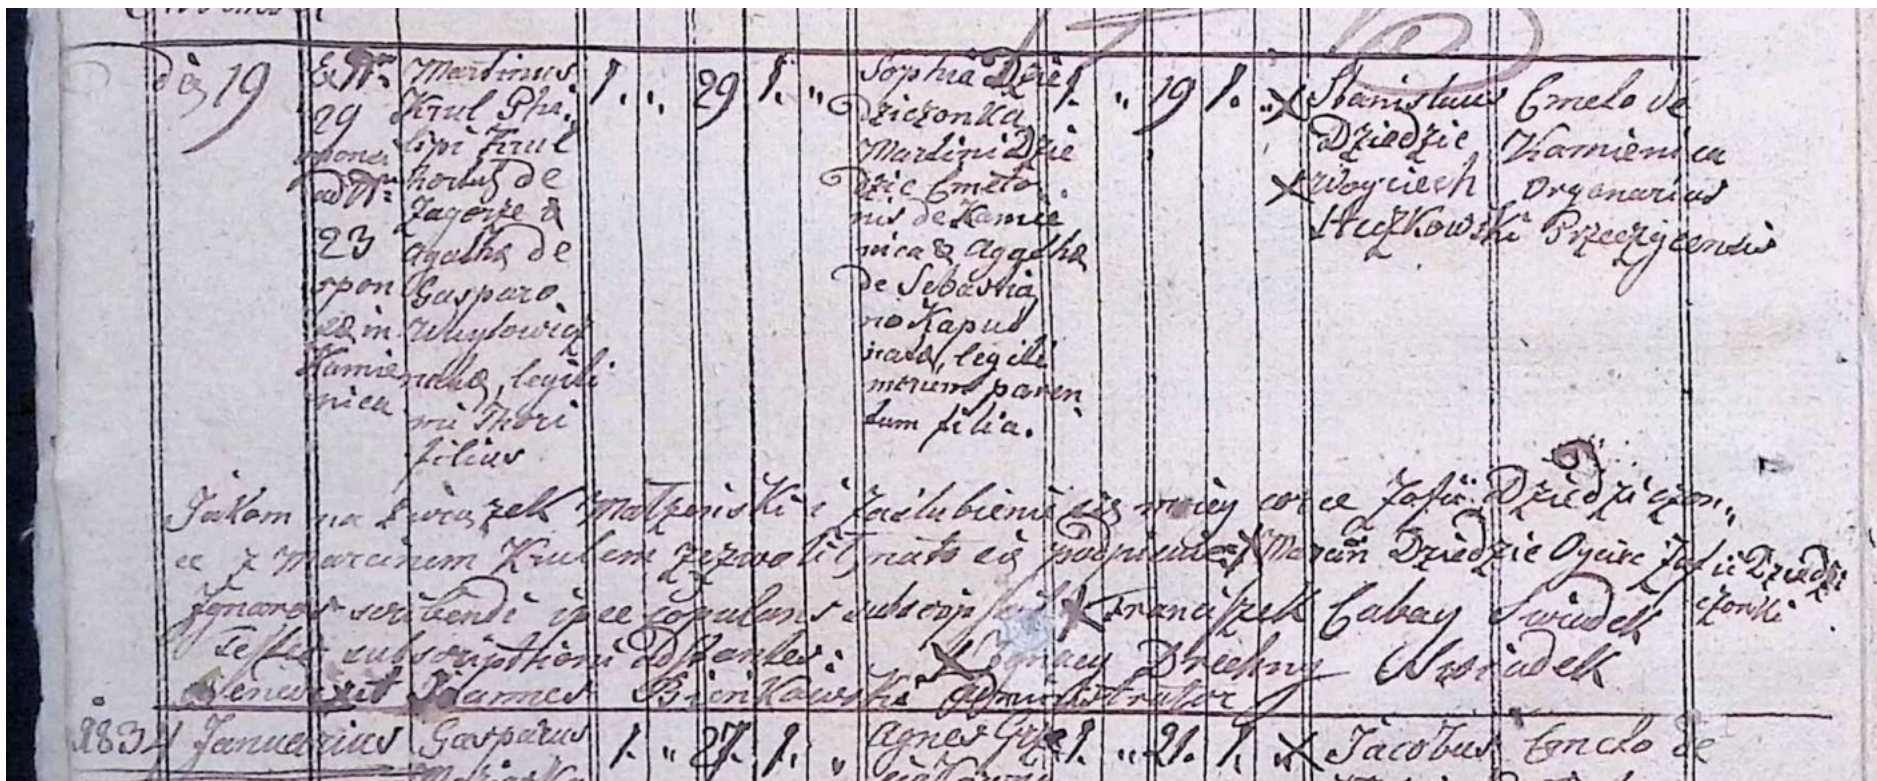 die 19
Ex Nr: 29
ad Nr: 23
in Kamienica
Martinus
Krul Phi
lipi Krul
hortul de
Zagorze &
Agatha de
Gasparo
Wuytowicz
natae, legiti
mi Thori
filius
1. „ 29 1. „
Sophia Dzie
dziczonka
Martini Dzie
dzic Cmeto
nis de Kamie
nica & Aggatha
de Sebastia
no Kapus
natae, legiti
morum paren
tum filia.
1. „ 19 1. „
X Stanislaus Cmeto de
Dziedzic Kamienica
X Woyciech Organarius
Przeczycensis
Jakom na związek Małżeński i zaślubienie się moiey corce Zofii Dziedziczon„
ce z Marcinem Krulem zezwolił, na to się podpisuie X Marcin Dziedzic Oyciec Zofii Dziedzi
czonki
Ignaros scribendi ipse copulans subscrip X Franciszek Cabay Swiadek
Testes subscriptioni Adstantes: X Ignacy Drechny Swiadek
Benedixit Joannes Bienkowski Administrator
1834 Januarius Gasparus 1. „ 27. 1. „ Agnes 1. „ 21. 1. X Jacobus Cmeto de